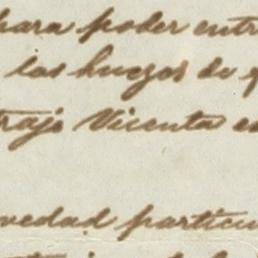 para poder entr
los huezos de
trajo Vicenta e
vedad particu